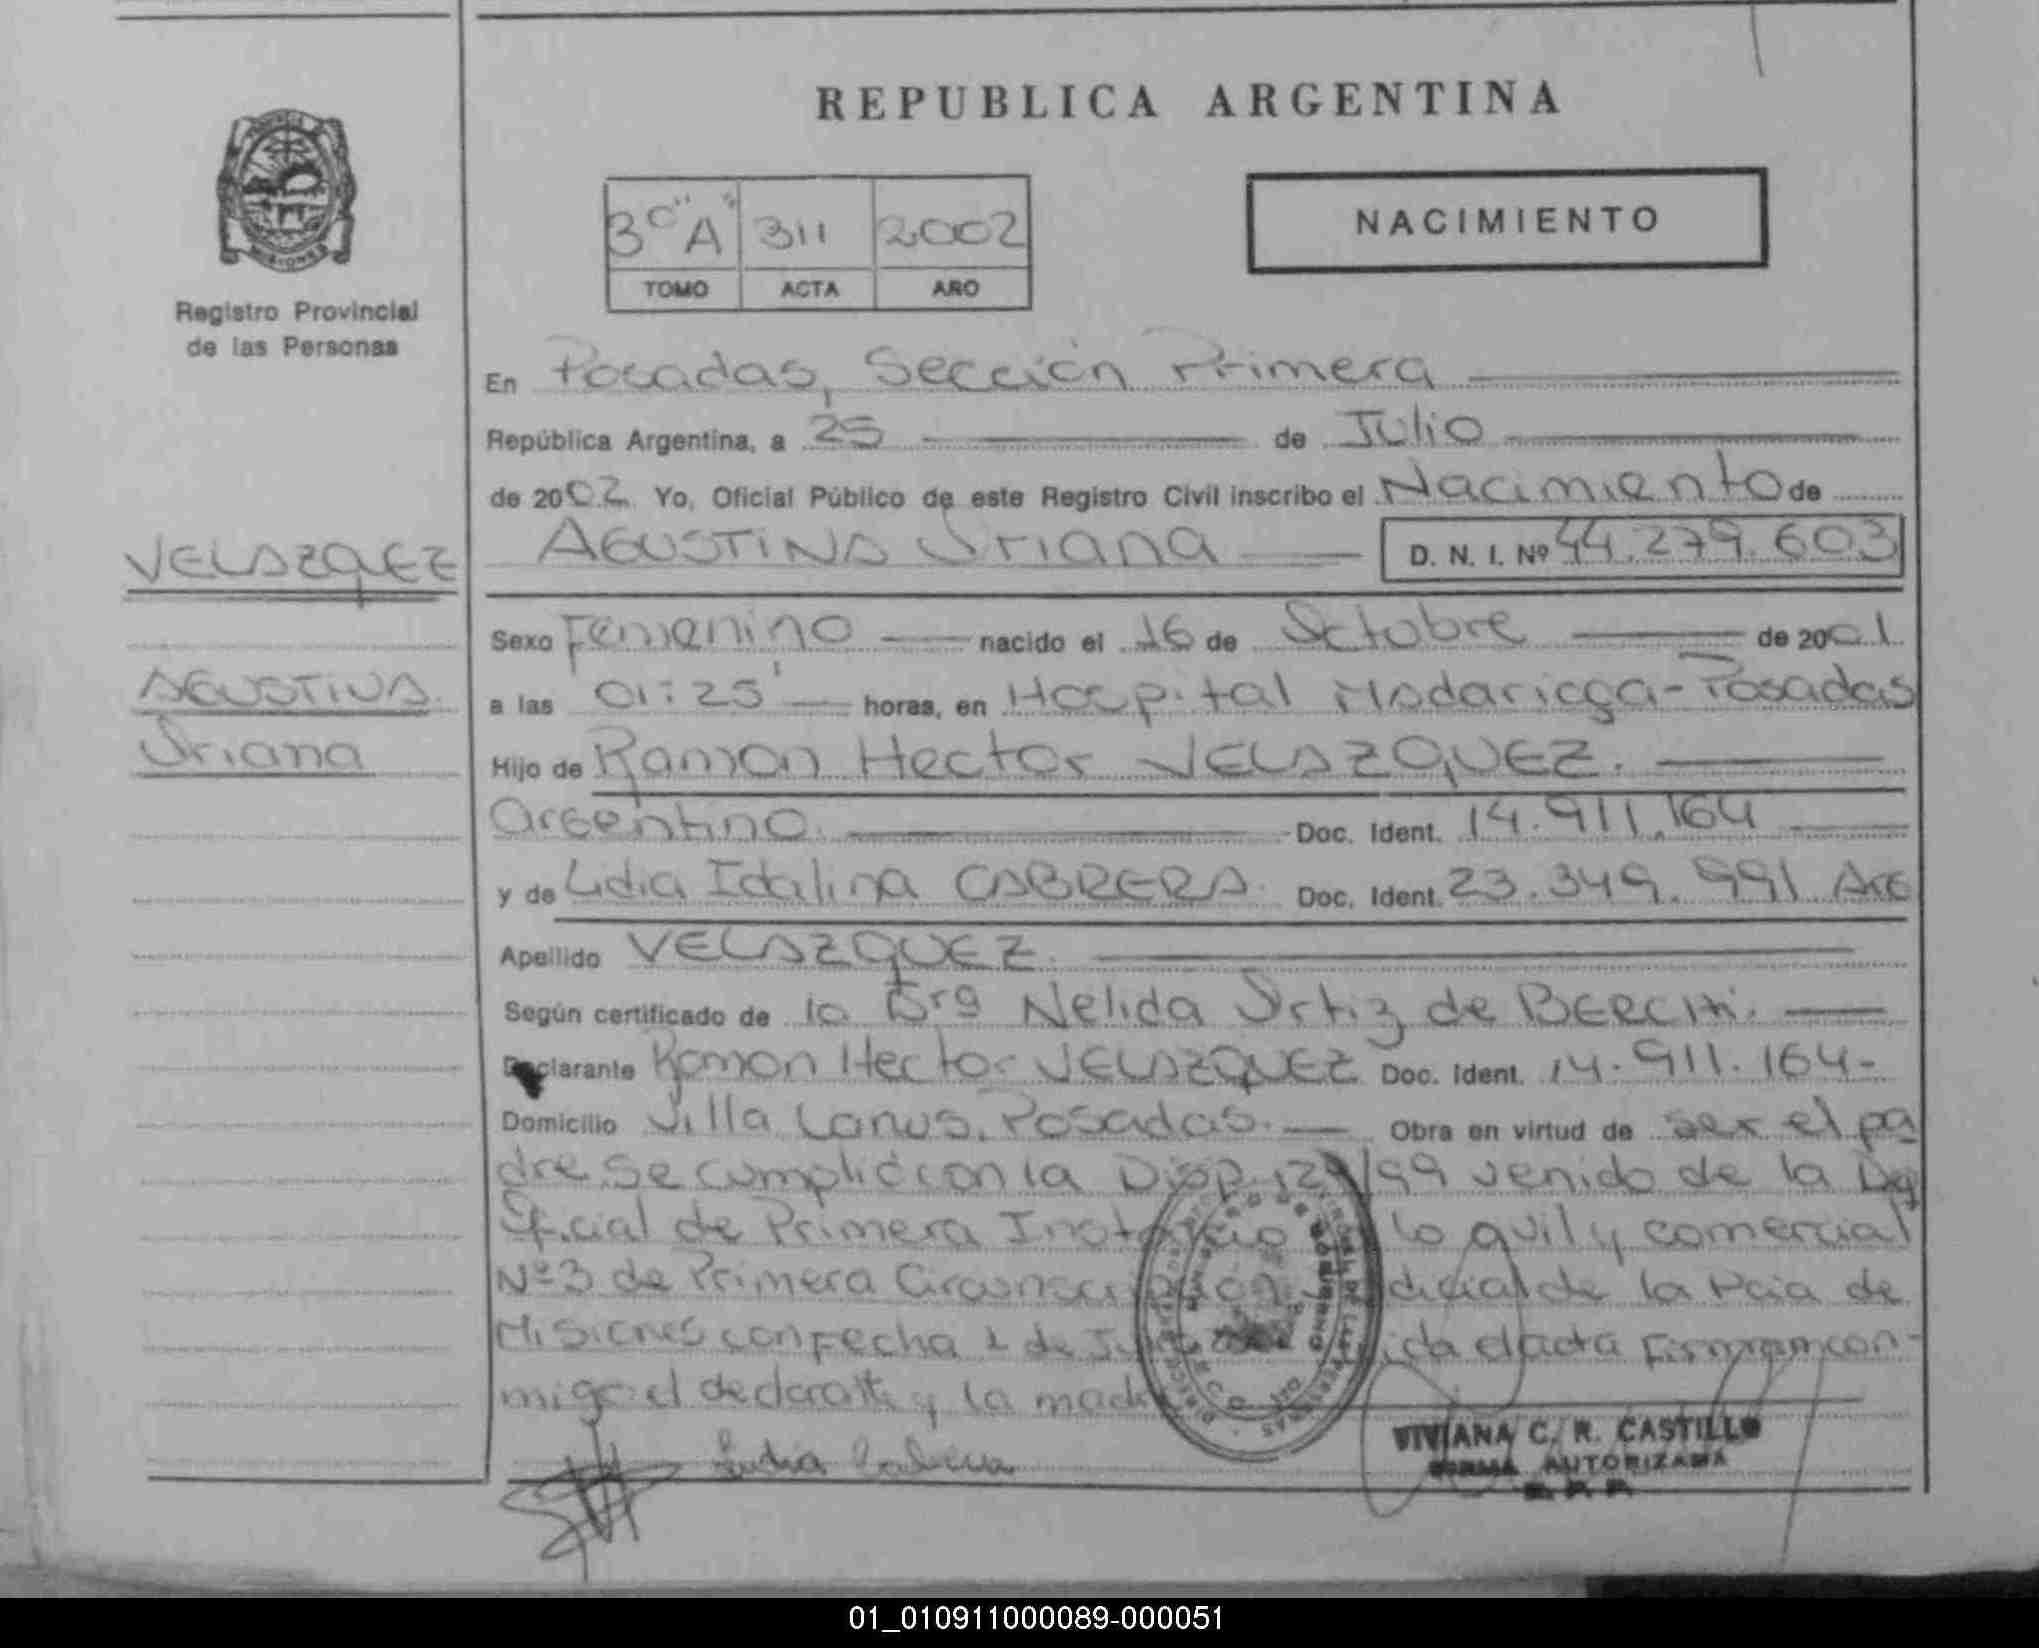 REPUBLICA ARGENTINA
PROVINCIA
MISIONES
Registro Provincial
de las Personas
3º "A" 311 2002
TOMO ACTA AÑO
NACIMIENTO
En Posadas, Sección Primera
República Argentina, a 25 de Julio
de 2002 Yo, Oficial Público de este Registro Civil inscribo el Nacimiento de
VELAZQUEZ
AGUSTINA Oriana D. N. I. Nº 44.279.603
Sexo Femenino nacido el 16 de Octubre de 2001
AGUSTINA
a las 01:25' horas, en Hospital Madariaga - Posadas
Oriana
Hijo de Ramon Hector VELAZQUEZ.
Argentino. Doc. Ident. 14.911.164
y de Lidia Idalina CABRERA. Doc. Ident. 23.349.991 Arg
Apellido VELAZQUEZ.
Según certificado de la Dra Nelida Ortiz de
Declarante Ramon Hector VELAZQUEZ Doc. Ident. 14.911.164-
Domicilio Villa Lanus. Posadas. Obra en virtud de ser el pa
dre. Se cumplió con la Disp. /99 venido de la
Oficial de Primera lo civil y comercial
Nº 3 de Primera de la Pcia de
Misiones con fecha de acta Firman con-
migo el declarante y la
Lidia Cabrera
VIVIANA C. R. CASTILLO
FIRMA AUTORIZADA
R. P. P.
01_010911000089-000051